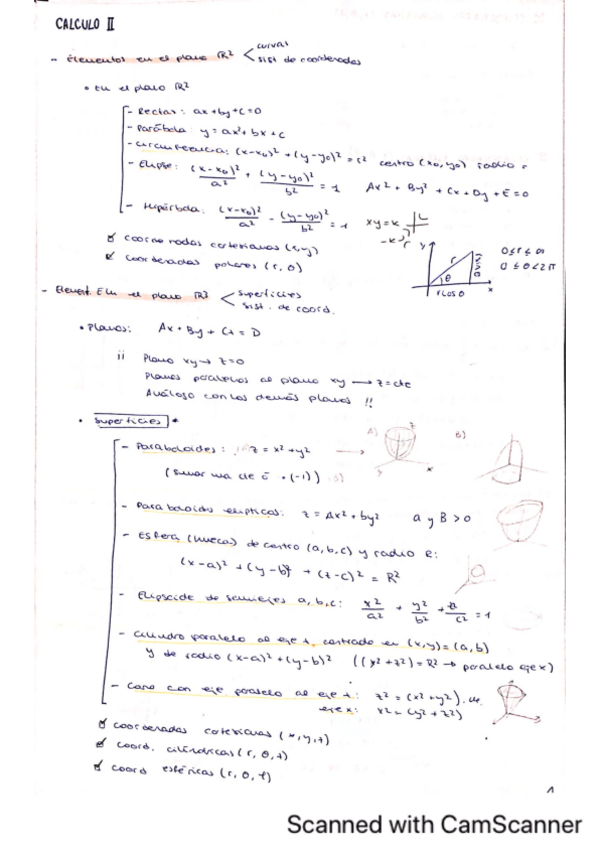 CALCULO II
- Elementos en el plano ℝ² < curvas
sist de coordenadas
• En el plano ℝ²
- Rectas: ax+by+c=0
- Parábola: y=ax²+bx+c
- Circunferencia: (x-x₀)²+(y-y₀)²=r² centro (x₀,y₀) radio r
- Elipse: (x-x₀)²/a² + (y-y₀)²/b² = 1 Ax²+By²+Cx+Dy+E=0
- Hipérbola: (x-x₀)²/a² - (y-y₀)²/b² = 1 xy=k
-k
☑ coordenadas cartesianas (x,y)
☑ coordenadas polares (r,θ)
y r θ x
r cos θ
r sen θ
0≤r≤∞
0≤θ<2π
- Element. En el plano ℝ³ < superficies
sist. de coord.
• Planos: Ax+By+Cz=D
¡¡ Plano xy → z=0
Planos paralelos al plano xy → z=cte
Análogo con los demás planos !!
• Superficies *
- Paraboloides: z=x²+y² → A) B)
z
y x
- Paraboloides elípticos: z=Ax²+by² a y B>0
- Esfera (hueca) de centro (a,b,c) y radio R:
(x-a)²+(y-b)²+(z-c)²=R²
- Elipsoide de semiejes a,b,c: x²/a² + y²/b² + z²/c² = 1
- Cilindro paralelo al eje z, centrado en (x,y)=(a,b)
y de radio (x-a)²+(y-b)² ((y²+z²)=R² → paralelo eje x)
- Cono con eje paralelo al eje z: z²=(x²+y²).
eje x: x²=(y²+z²)
☑ coordenadas cartesianas (x,y,z)
☑ coord. cilíndricas (r,θ,z)
☑ coord esféricas (r,θ,φ)
1
Scanned with CamScanner